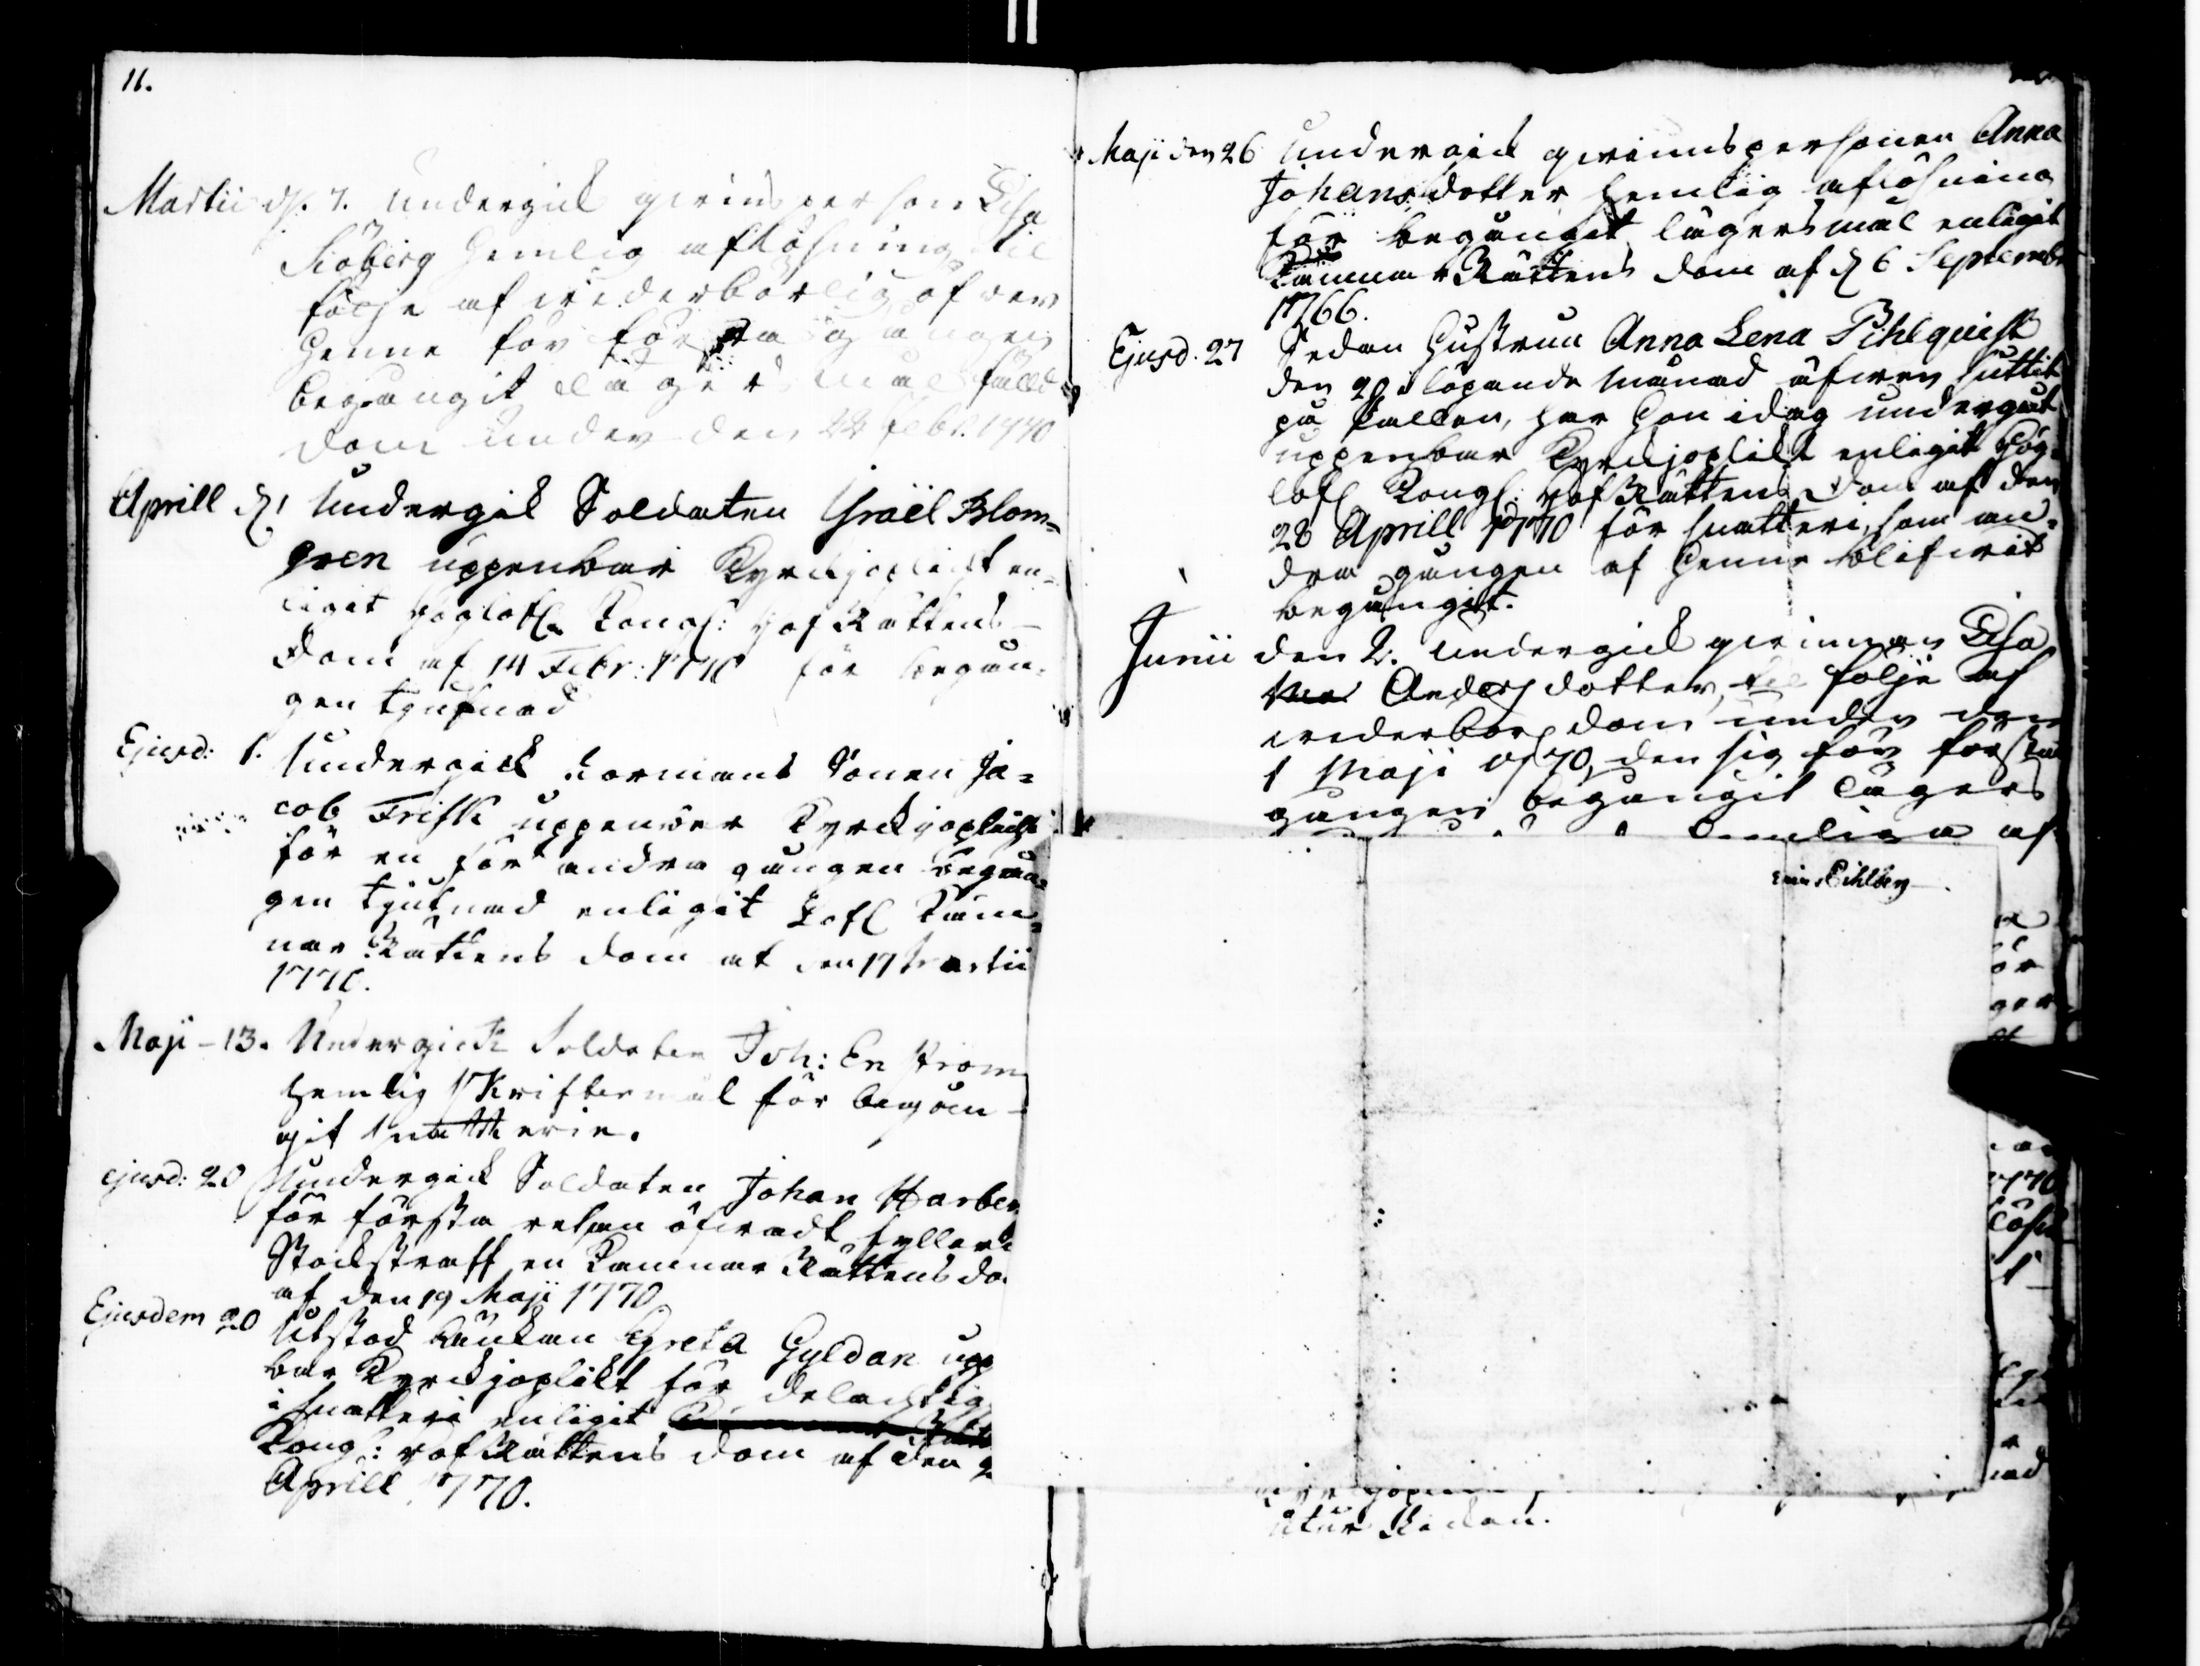 11.
Martii d. 7. Undergick qvinsperson Lisa
Siöberg hemlig aflösning til
följe af wederbörlig öfwer
henne för första gången
begångit lägersmål fälld
dom under den 22 Febr. 1770
Aprill d. 1 Undergik Soldaten Israël Blom=
gren uppenbar Kyrckjoplicht en=
ligit höglofl. Kongl: HofRättens
dom af 14 Febr: 1770 för begån=
gen tjufnad
Ejusd: 1. Undergick Formans Sonen Ja=
cob Frisk uppenbar Kyrckjoplicht
för en för andra gången begån=
gen tjufnad enligit Lofl Käm=
nar Rättens dom af den 17 Martii
1770.
Maji - 13. Undergick Soldaten Joh: En ström
hemlig Skriftermål för begån-
git snatterie.
ejusd: 20 Undergick Soldaten Johan Harber
för första resan öfwadt fylleri
Stockstraff en Kämnar Rättens do
af den 19 Maji 1770
Ejusdem 20 Utstod Änkan Greta Gyldan upp
bar Kyrckjoplikt för delacktig
i snatteri enligit
Kong: HofRättens dom af den 2
Aprill 1770.
Maji den 26 Undergick qvinnspersonen Anna
Johansdotter hemlig aflösning
för begångit lägersmål enligit
Kämnar Rättens dom af d 6 Septembr
1766.
Ejusd. 27 Sedan Hustrun Anna Lena Pihlquist
den 20 löpande månad äfwen suttit
på Pallen, har hon idag undergåt
uppenbar Kyrckjoplikt enligit Hög=
lofl Kongl: HofRättens dom af den
28 Aprill 1770 för snatteri, som an=
dra gången af henne blifwit
begångit.
Junii den 2. Undergick qvinnan Lisa
Andersdotter, til följe af
wederbörl dom under den
1 Maji 1770, den sig för första
gången begångit lägers
hemliga af
Pihlberg
ör
ger
1770
lösn
nad